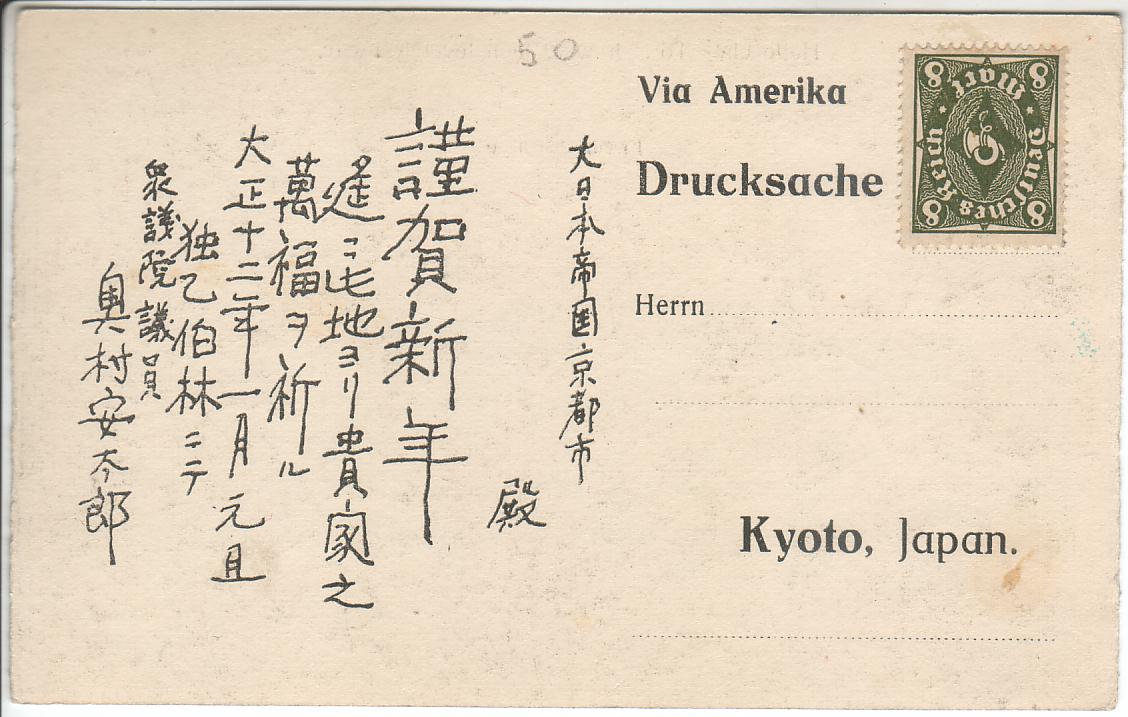 50
Via Amerika
Drucksache
8 8
Mark
Deutsches Reich
8 8
Herrn
Kyoto, Japan.
大日本帝国京都市
殿
謹賀新年
遙ニ宅地ヨリ貴家之
萬福ヲ祈ル
大正十二年一月元旦
独乙伯林ニテ
衆議院議員
奥村安太郎